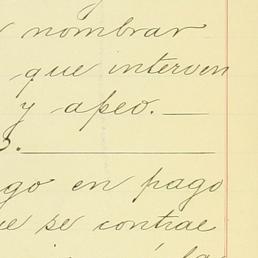 nombrar
que interven
y apeo.
go en pago
e se contrae